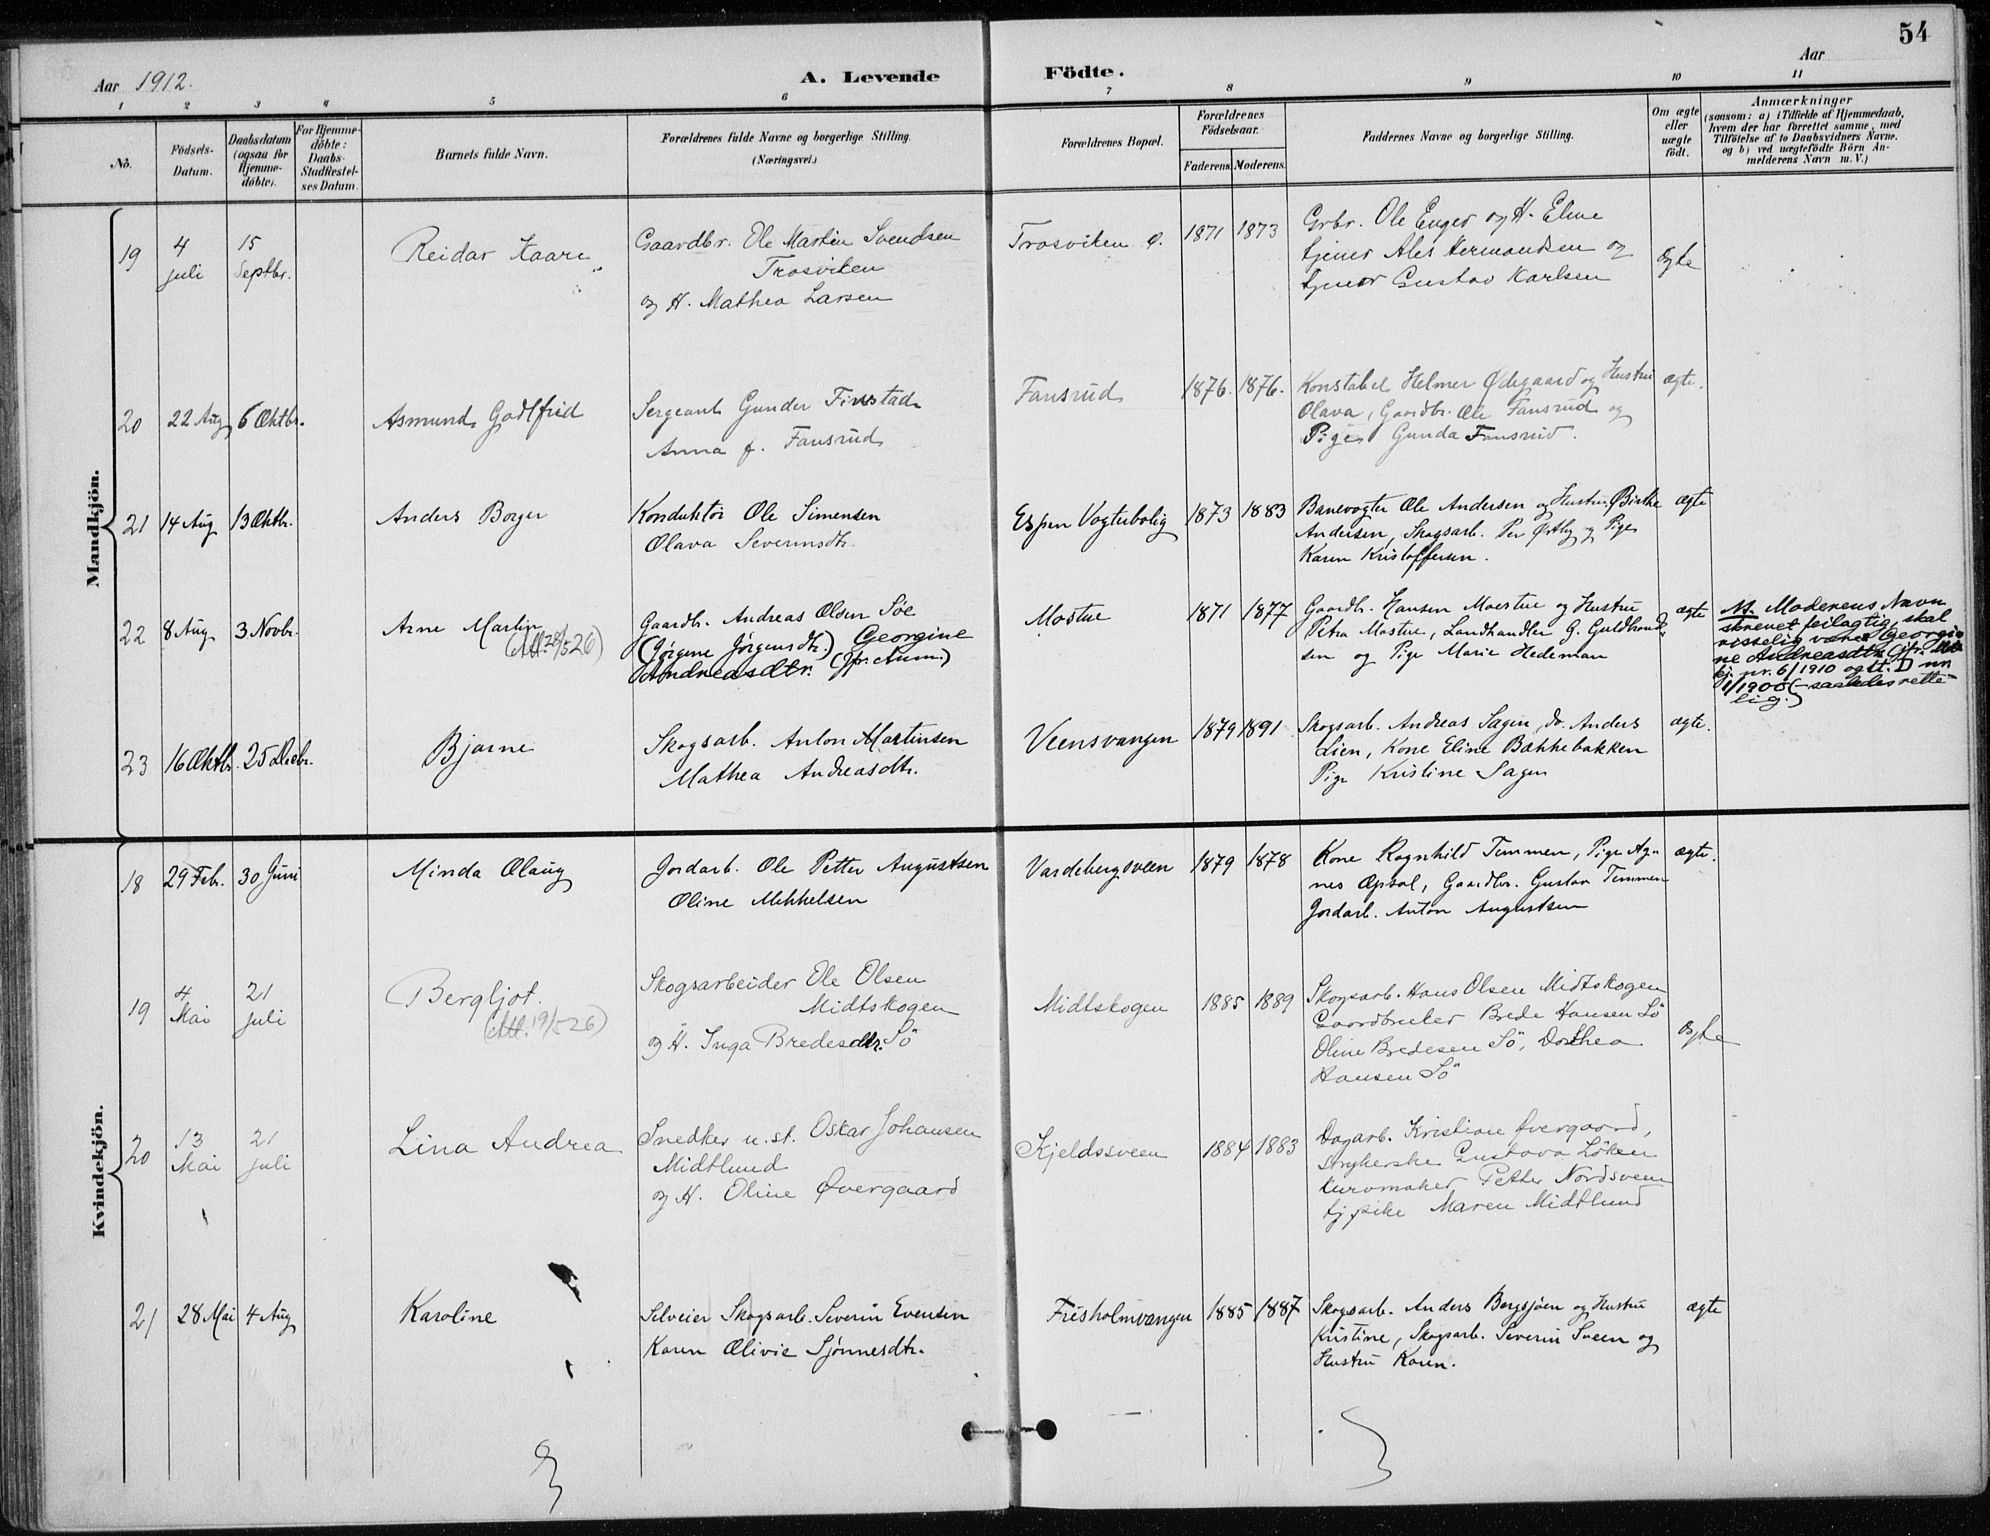 54
Aar 1912.
A. Levende Födte.
Aar
1 2 3 4 5 6 7 8 9 10 11
No.
Födsels-
Datum.
Daabsdatum
(ogsaa for
Hjemme-
döbte).
For Hjemme-
döbte:
Daabs-
Stadfestel-
ses Datum.
Barnets fulde Navn.
Forældrenes fulde Navne og borgerlige Stilling.
(Næringsvei.)
Forældrenes Bopæl.
Forældrenes
Födselsaar.
Faderens. Moderens.
Faddernes Navne og borgerlige Stilling.
Om ægte
eller
uægte
födt.
Anmærkninger
(saasom: a) i Tilfælde af Hjemmedaab,
hvem der har forrettet samme, med
Tilföielse af to Daabsvidners Navne.
og b) ved uægtefödte Börn An-
melderens Navn m. V.)
Mandkjön.
19
4
juli
15
Septbr.
Reidar Kaare
Gaardbr. Ole Martin Svendsen
Trosviken
og H. Mathea Larsen
Trosviken ø.
1871 1873
Grbr. Ole Enger og H. Eline
tjener Hermandsen og
tjener Gustav Karlsen
Ægte
20
22 Aug
6 Oktbr.
Asmund Godtfred
Sergeant Gunder Finstad
Anna f. Fansrud
Fansrud
1876. 1876.
Konstabel Helmer Ødegaard og Hustru
Olava, Gaardbr. Ole Fansrud og
Pige Gunda Fansrud.
ægte.
21
14 Aug
13 Oktbr.
Anders Borger
Konduktør Ole Simensen
Olava Severinsdtr.
Espen Vogterbolig
1873 1883
Banevogter Ole Andersen og Hustru Birthe
Andersen, Skogsarb. Per Østby og Pige
Karen Kristoffersen.
ægte
22
8 Aug
3 Novbr.
Arne Martin
(Att. 28/5 26)
Gaardbr. Andreas Olsen Söe
(Jørgine Jørgensdtr.) Georgine
Andreasdtr. (Jfr. Anm.)
Mostue
1871 1877
Gaardbr. Hansen Moestue og Hustru
Petra Mostue, Landhandler G. Guldbrand-
sen og Pige Marie Hedeman
ægte
N. Moderens Navn
skrevet feilagtig, skal
visselig være Georgi-
ne Andreasdtr. (Jfr.
kj. nr. 6/1910 og Lit. D nr
1/1900 (- saaledes rette-
lig.)
23
16 Oktbr.
25 Decbr.
Bjarne
Skogsarb. Anton Martinsen
Mathea Andreasdtr.
Veensvangen
1879 1891
Skogsarb. Andreas Sagen, do. Anders
Lien, Kone Eline Bakkebakken
Pige Kristine Sagen
ægte.
Kvindekjön.
18
29 Feb.
30 Juni
Minda Olaug
Jordarb. Ole Petter Augustsen
Oline Mikkelsen
Vardebergsveen
1879 1878
Kone Ragnhild Temmen, Pige Ag-
nes Opsal, Gaardbr. Gustav Temmen
Jordarb. Anton Augustsen
ægte.
19
4
Mai
21
juli
Bergljot.
(Att. 19/5 26)
Skogsarbeider Ole Olsen
Midtskogen
og H. Inga Bredesdtr. Sö
Midtskogen
1885 1889
Skogsarb. Hans Olsen Midtskogen
Gaardbruker Brede Hansen Sö
Oline Bredesen Sö, Dorthea
Hansen Sö
Ægte
20
13
Mai
21
juli
Lina Andrea
Snedker u. st. Oskar Johansen
Midtlund
og H. Oline Øvergaard
Kjeldssveen
1884 1883
Dagarb. Kristian Øvergaard,
strykerske Gustava Löken
kurvmaker Petter Nordsveen
tj. pike Maren Midtlund
21
28 Mai
4 Aug
Karoline
Selveier Skogsarb. Severin Evensen
Karen Olivie Sjønnesdtr.
Frisholmvangen
1885 1887
Skogsarb. Anders Bergsjøen og Hustru
Kristine, Skogsarb. Severin Sveen og
Hustru Karen.
ægte